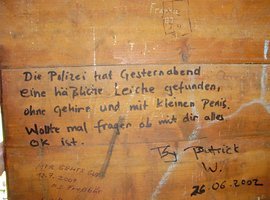 Die Polizei hat Gesternabend
eine häßliche Leiche gefunden,
ohne Gehirn und mit kleinen Penis.
Wollte mal fragen ob mit dir alles
OK ist.
Patrick
W.
26.06.2002